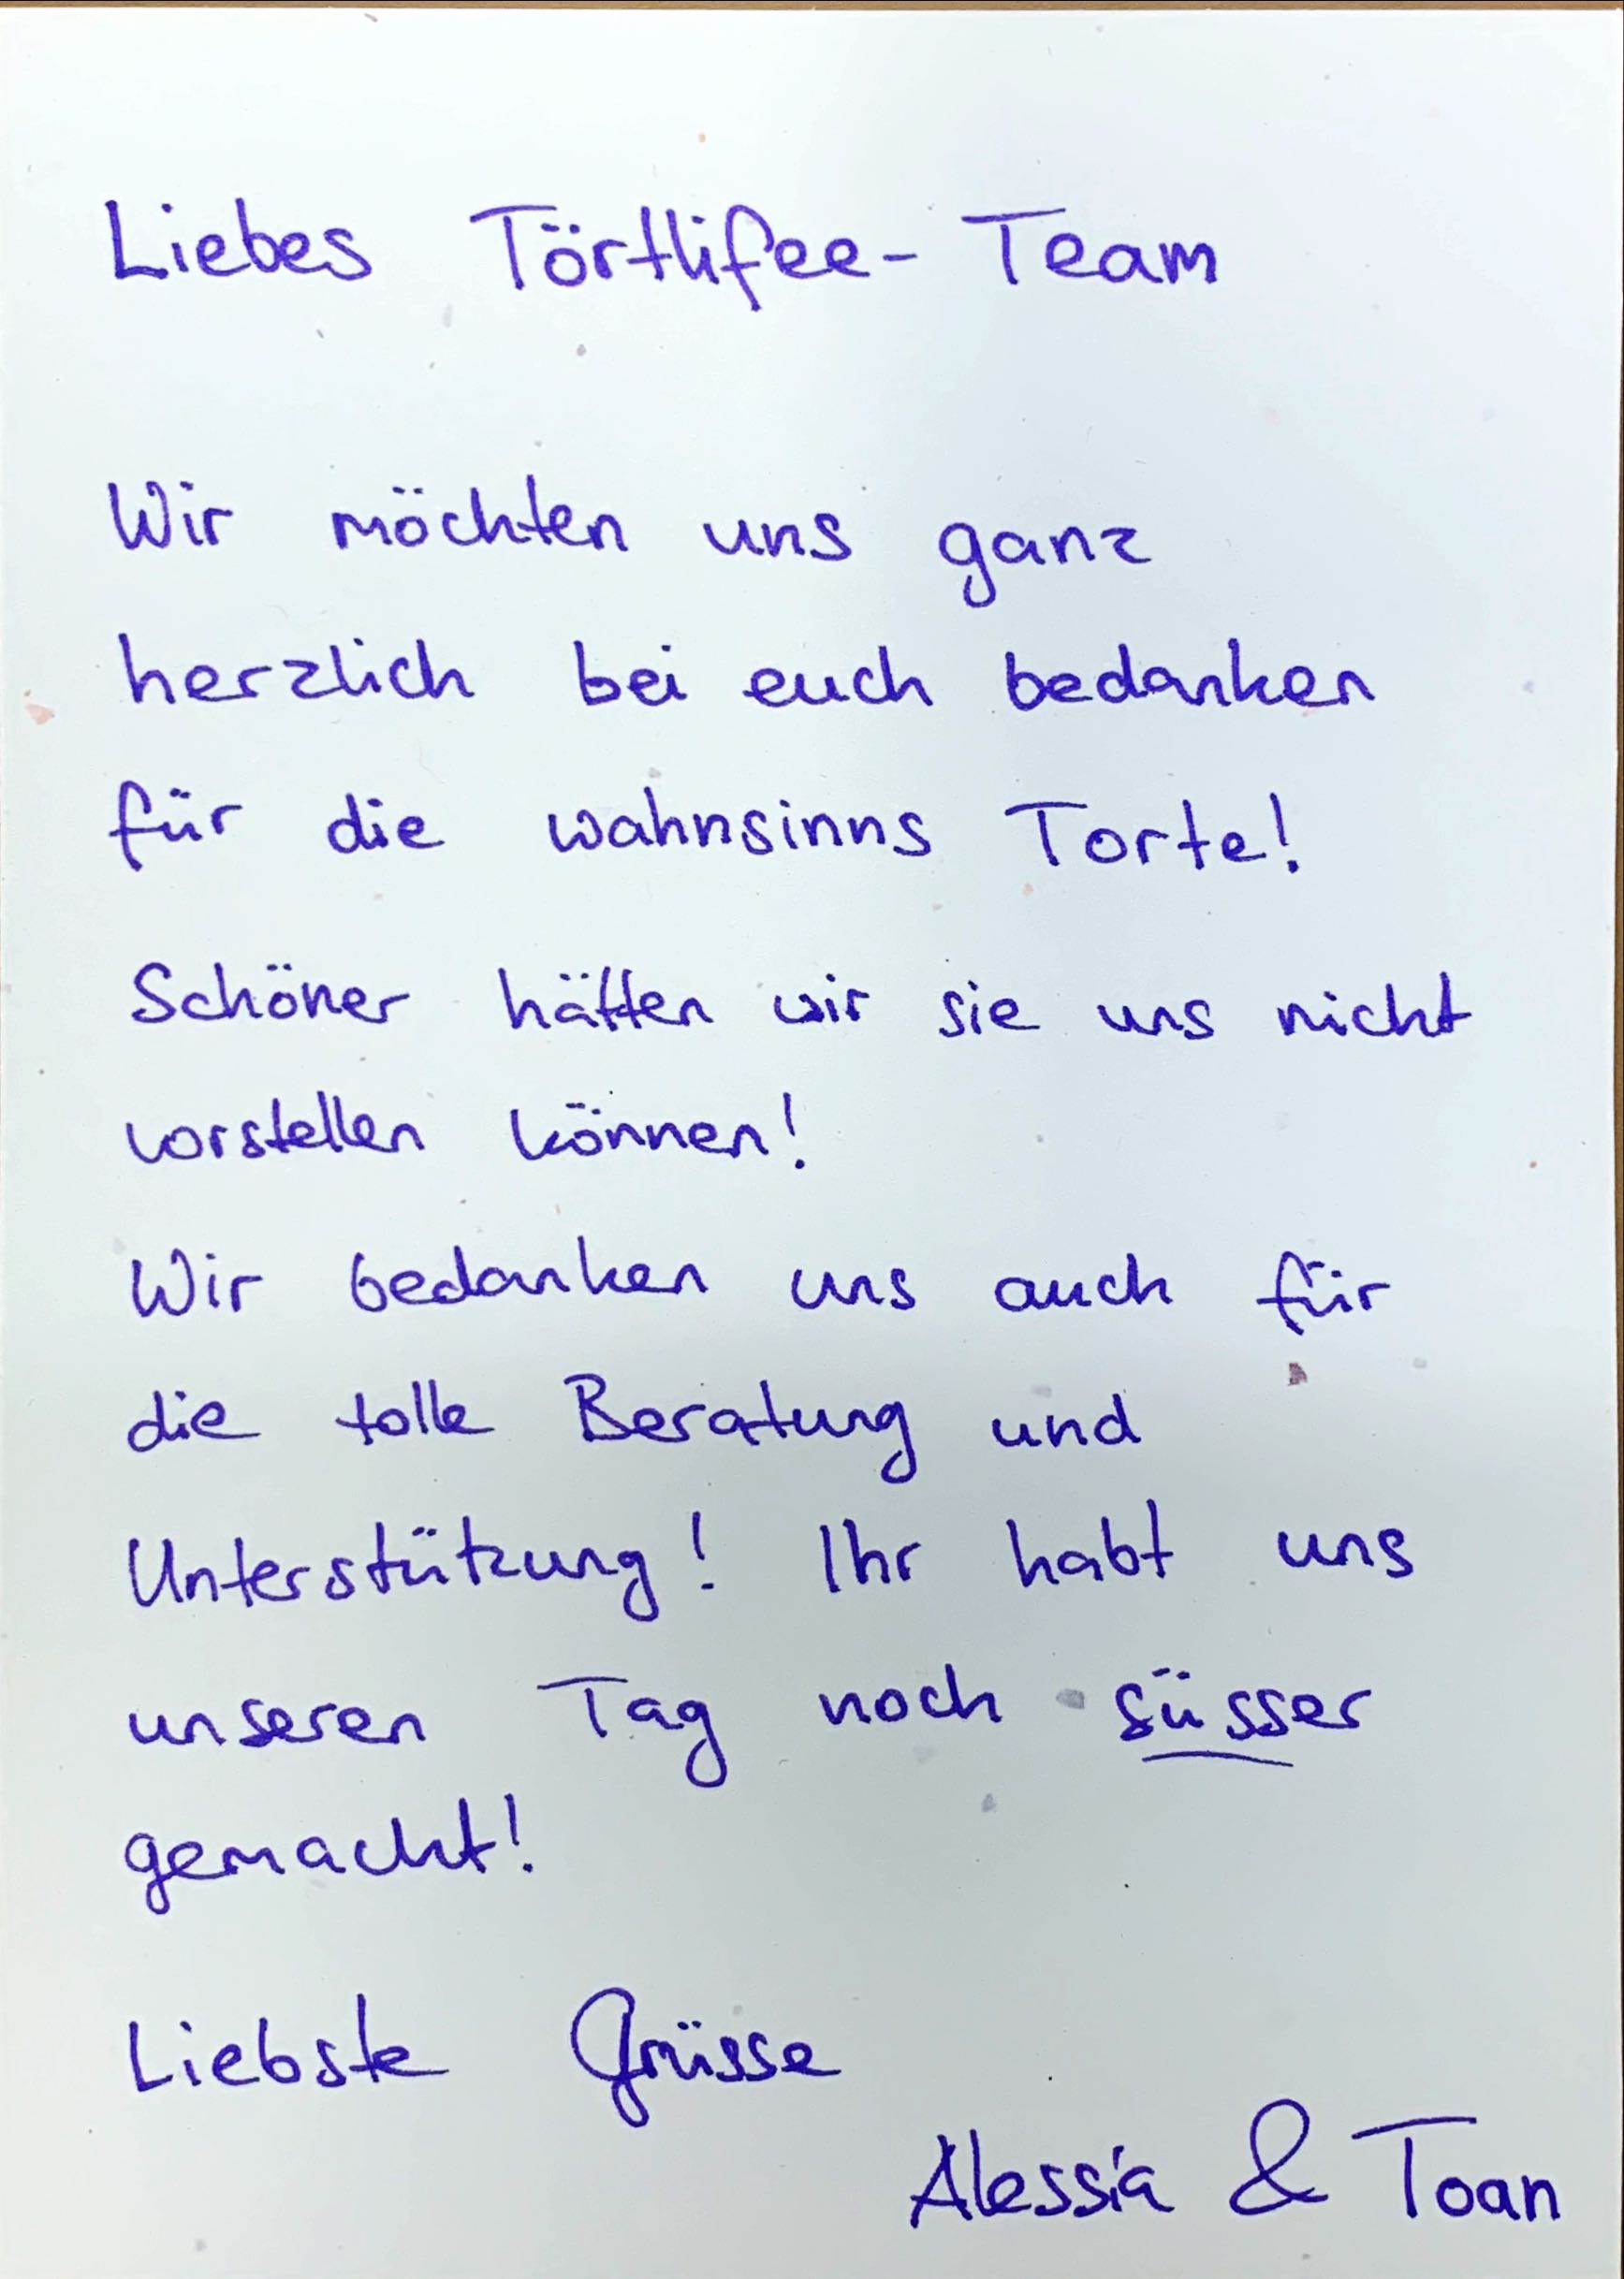 Liebes Törtlifee-Team
Wir möchten uns ganz
herzlich bei euch bedanken
für die wahnsinns Torte!
Schöner hätten wir sie uns nicht
vorstellen können!
Wir bedanken uns auch für
die tolle Beratung und
Unterstützung! Ihr habt uns
unseren Tag noch süsser
gemacht!
Liebste Grüsse
Alessia & Toan